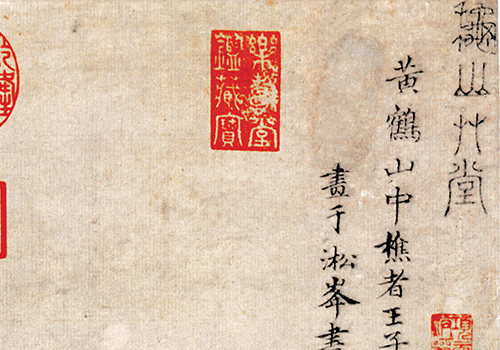 山艸堂
黃鶴山中樵者王子
畫于淞峯書
樂壽堂
鑑藏寶